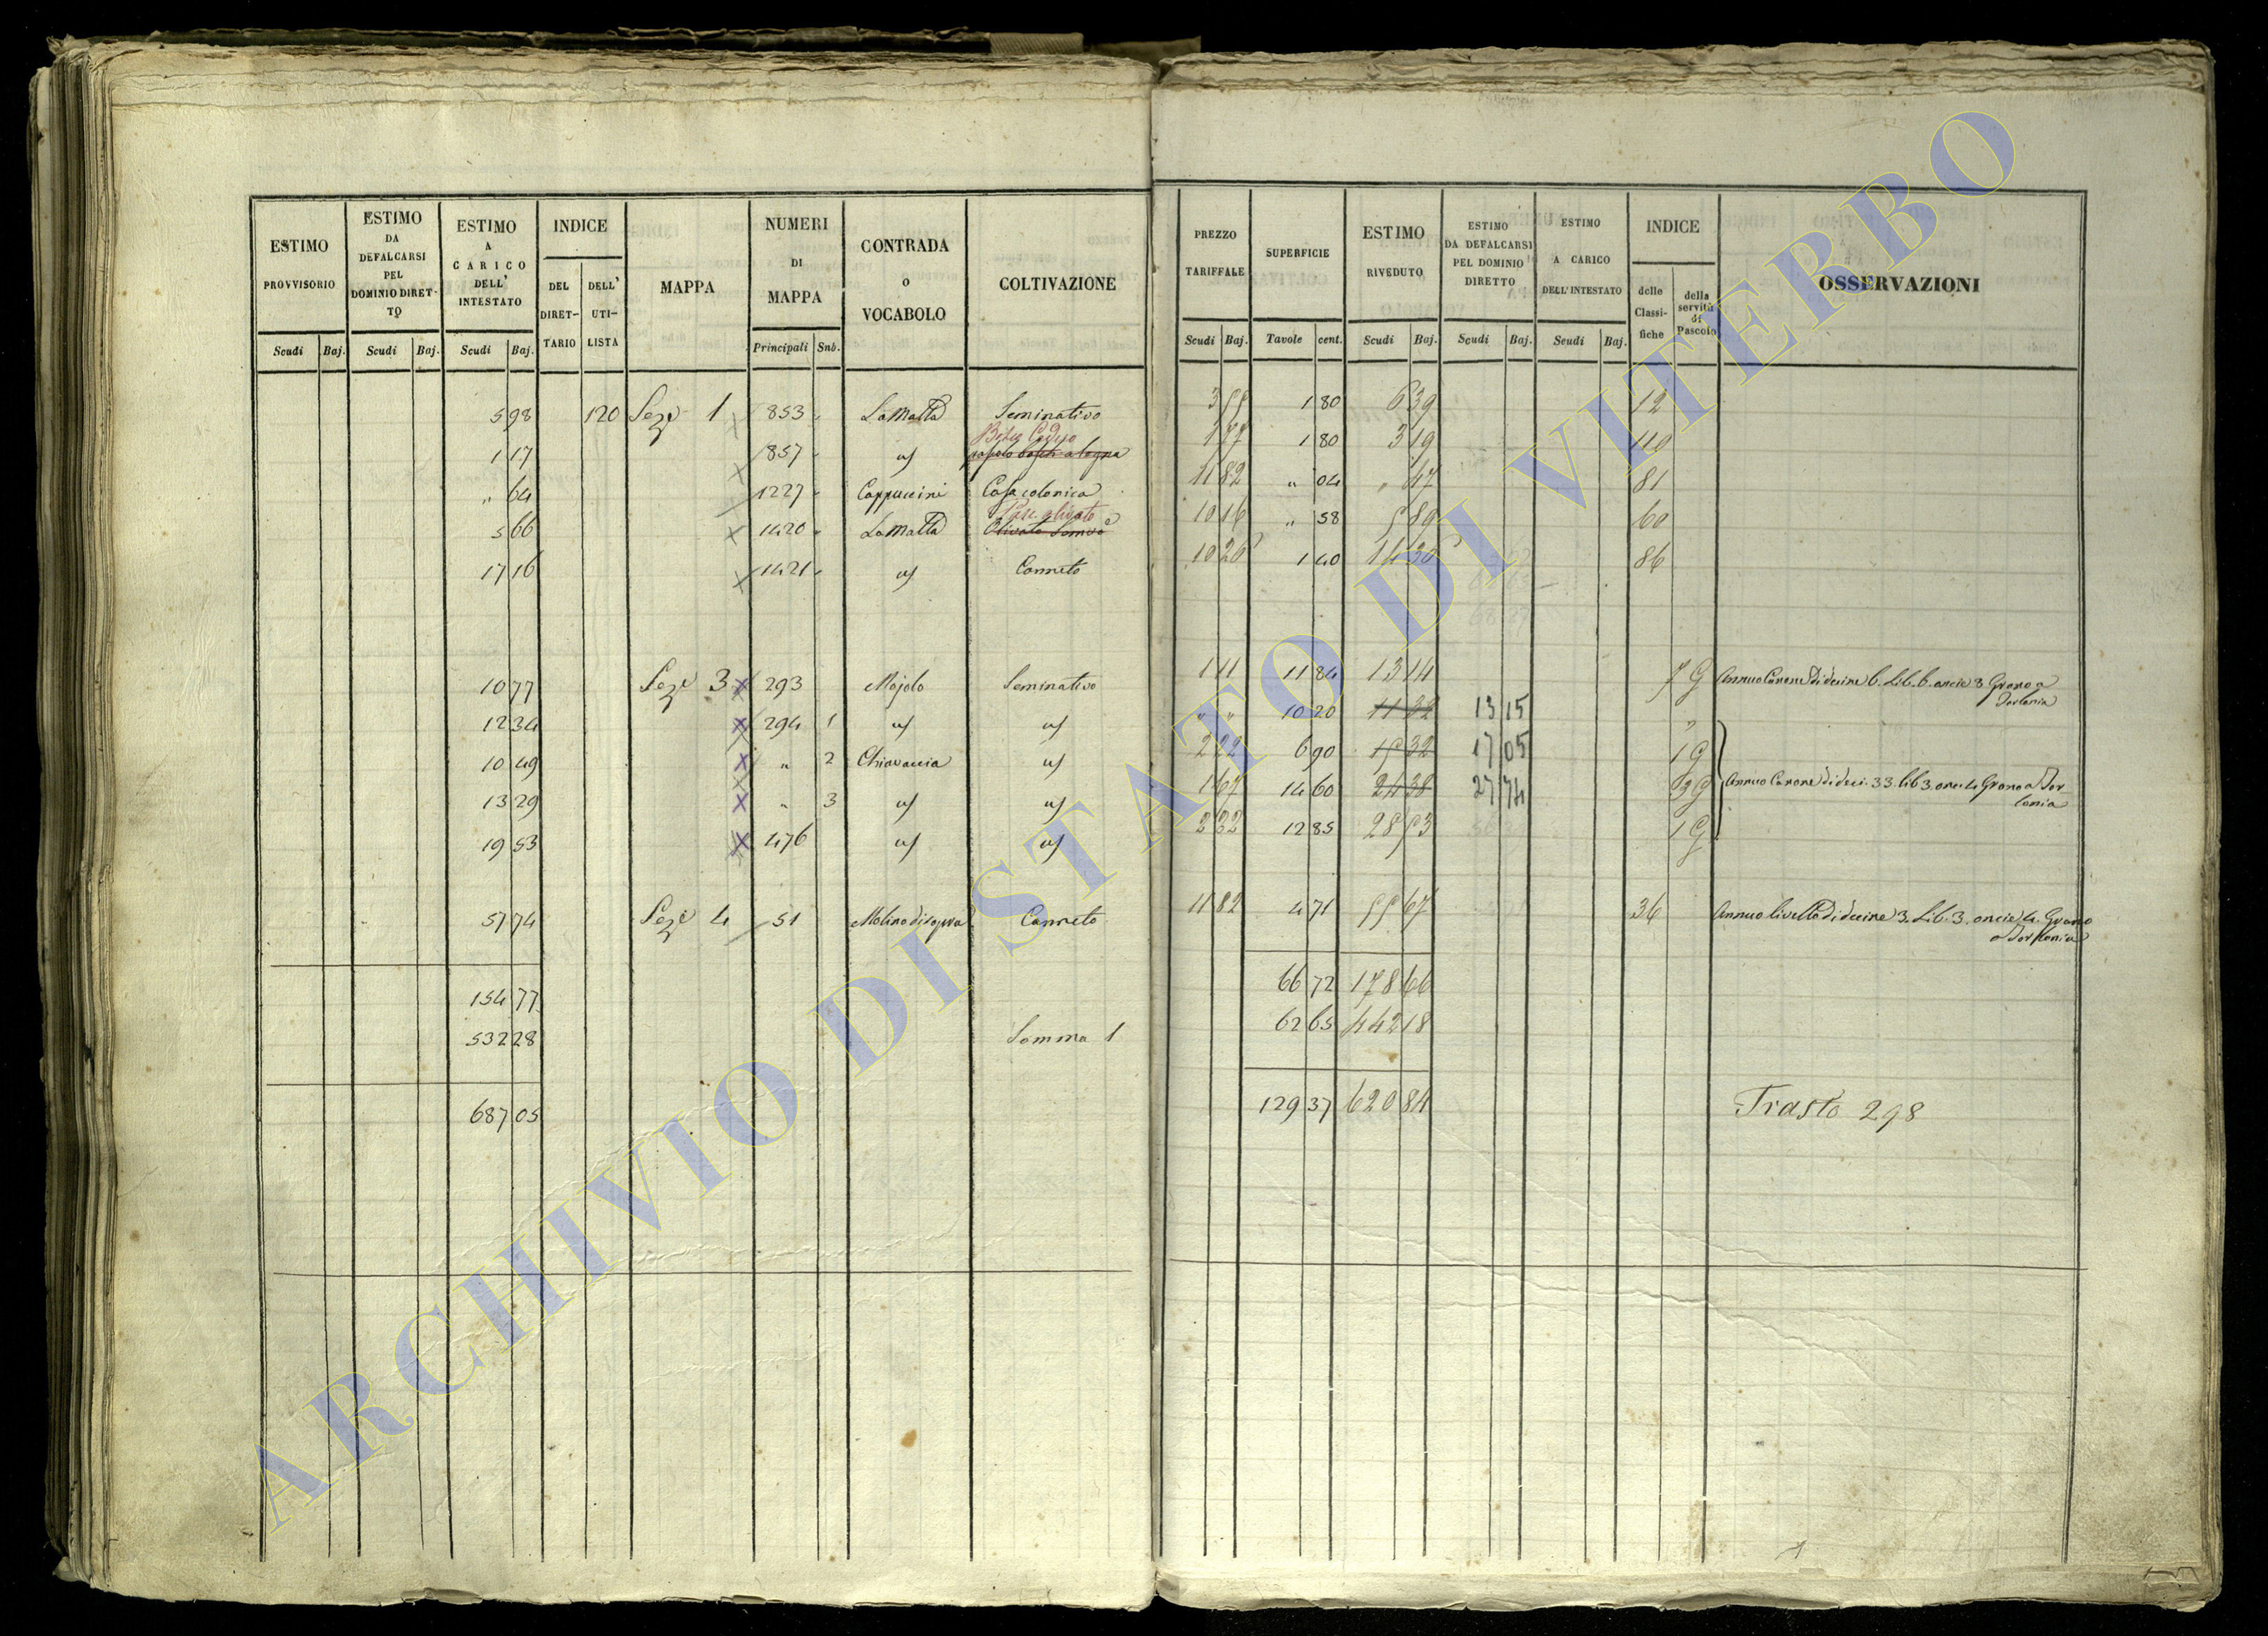 ESTIMO PROVVISORIO Scudi Baj.
ESTIMO DA DEFALCARSI PEL DOMINIO DIRET-TO Scudi Baj.
ESTIMO A CARICO DELL' INTESTATO Scudi Baj.
INDICE DEL DIRET-TARIO DELL' UTI-LISTA
MAPPA
NUMERI DI MAPPA Principali Sub.
CONTRADA o VOCABOLO
COLTIVAZIONE
PREZZO TARIFFALE Scudi Baj.
SUPERFICIE Tavole cent.
ESTIMO RIVEDUTO Scudi Baj.
ESTIMO DA DEFALCARSI PEL DOMINIO DIRETTO Scudi Baj.
ESTIMO A CARICO DELL'INTESTATO Scudi Baj.
INDICE delle Classi-fiche della servitù di Pascolo
OSSERVAZIONI
5 98 120 Sez.e 1 853 La Matta Seminativo 3 55 1 80 6 39 12
1 17 857 " Ceduo 1 77 1 80 3 19 110
" 64 1227 Cappuccini Casa colonica 11 82 " 04 " 47 81
5 66 1420 La Matta Pasc. olivato Olivato 10 16 " 58 5 89 60
17 16 1421 " Canneto 10 26 1 40 14 36 86
10 77 Sez.e 3 293 Mojolo Seminativo 1 11 11 84 13 14 7 G Annuo Canone di decine 6. Lib. 6. oncie 8 Grano a Torlonia
12 34 294 1 " " " " 10 20 11 32 13 15 "
10 49 " 2 Chiavaccia " 2 22 6 90 15 32 17 05 1 G
13 29 " 3 " " 1 67 14 60 24 38 27 74 3 G Annuo Canone di deci. 33. lib 3. onc. 4 Grano a Torlonia
19 53 476 " " 2 22 12 85 28 53 1 G
57 74 Sez.e 4 51 Molino di sopra Canneto 11 82 4 71 55 67 36 Annuo livello di decine 3. Lib. 3. oncie 4. Grano a Torlonia
154 77 66 72 178 66
532 28 Somma 1 62 65 442 18
687 05 129 37 620 84 Trasto 298
ARCHIVIO DI STATO DI VITERBO